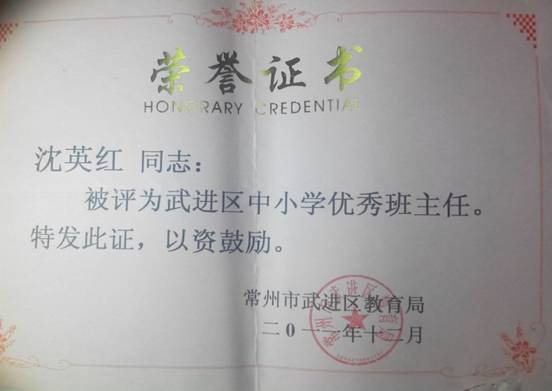 荣誉证书
HONORARY CREDENTIAL
沈英红 同志：
被评为武进区中小学优秀班主任。
特发此证，以资鼓励。
常州市武进区教育局
二0一一年十二月